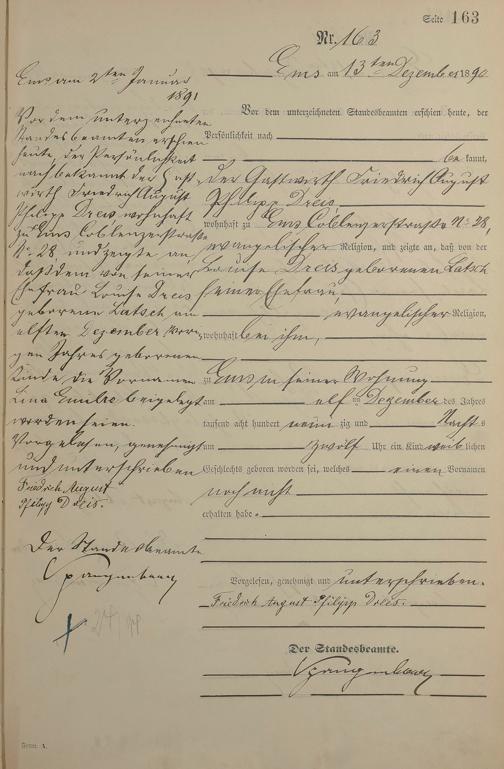 Seite 163
Nr. 163
Ems am 13ten Dezember 1890
Vor dem unterzeichneten Standesbeamten erschien heute, der
Persönlichkeit nach
be kannt,
der Gastwirth Friedrich August
Philipp Dreis,
wohnhaft zu Ems Coblenzerstraße No. 28,
evangelischer Religion, und zeigte an, daß von der
Louise Dreis geborenen Latsch
seiner Ehefrau,
evangelischer Religion,
wohnhaft bei ihm,
zu Ems in seiner Wohnung
am elften Dezember des Jahres
tausend acht hundert neunzig und Nachts
um zwölf Uhr ein Kind weiblichen
Geschlechts geboren worden sei, welches einen Vornamen
noch nicht
erhalten habe.
Vorgelesen, genehmigt und unterschrieben.
Friedrich August Philipp Dreis.
Der Standesbeamte.
Spangenberg
Ems am 2ten Januar
1891
Vor dem unterzeichneten
Standesbeamten erschien
heute, der Persönlichkeit
nach bekannt der Gast-
wirth Friedrich August
Philipp Dreis wohnhaft
zu Ems Coblenzerstraße
No. 28 und zeigte an,
daß dem von seiner
Ehefrau Louise Dreis
geborene Latsch am
elften Dezember vori-
gen Jahres geborenen
Kinde die Vornamen
Lina Emilie beigelegt
worden seien.
Vorgelesen, genehmigt
und unterschrieben
Friedrich August
Philipp Dreis.
Der Standesbeamte
Spangenberg
Form. A.